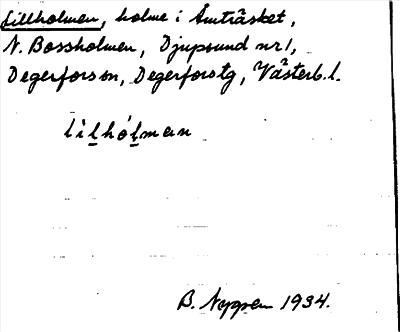 Lillholmen, holme i Åmträsket,
N. Bossholmen, Djupsund nr 1,
Degerfors sn, Degerfors tg, Västerb. l.
lìlhólman
B. 1934.